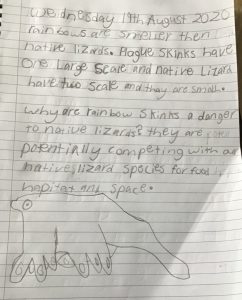 Wednesday 19th August 2020
rainbows are smeller then
native lizards. Plague skinks have
one large scale and native lizard
have two scale and they are small.
Why are rainbow skinks a danger
to native lizards? they are
potentially competing with our
native lizard species for food
hapitet and space.